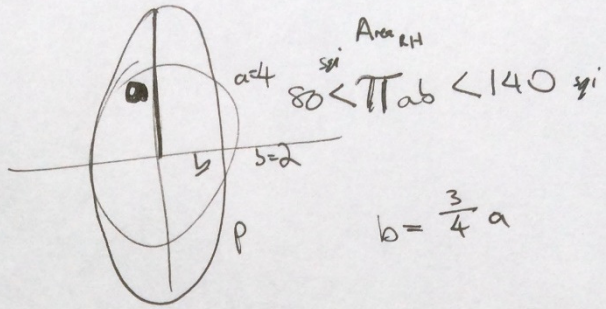 Area RH
a
a=4
80 sqi < πab < 140 sqi
b
b=2
b = 3/4 a
P